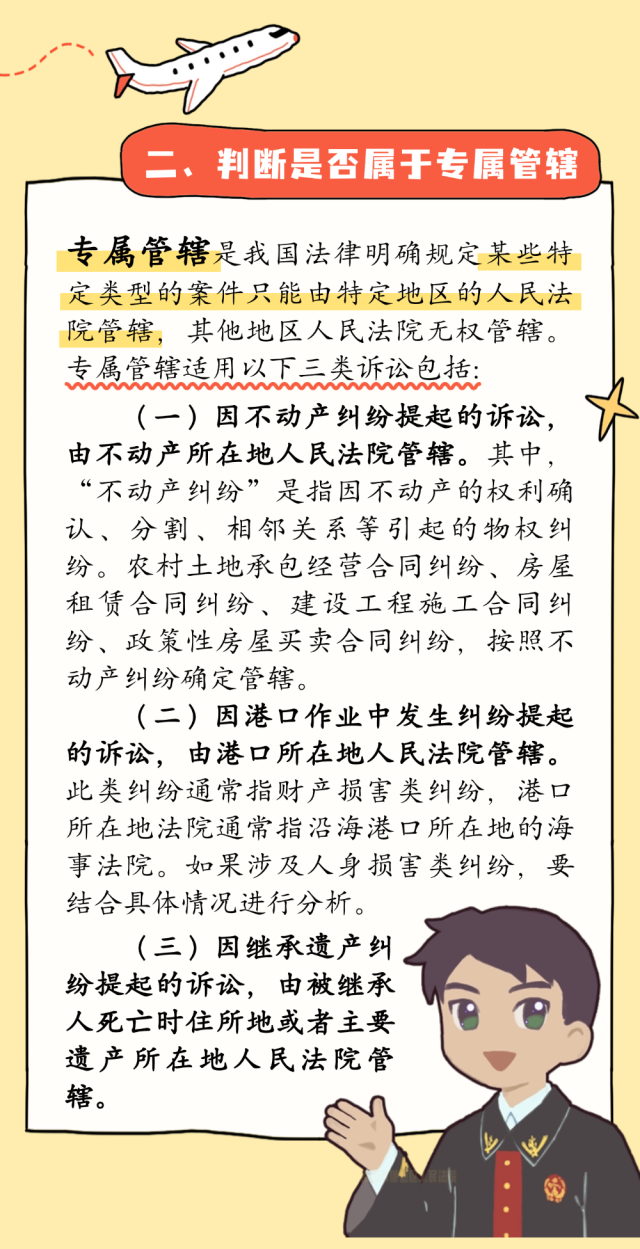 二、判断是否属于专属管辖
专属管辖是我国法律明确规定某些特
定类型的案件只能由特定地区的人民法
院管辖，其他地区人民法院无权管辖。
专属管辖适用以下三类诉讼包括:
（一）因不动产纠纷提起的诉讼，
由不动产所在地人民法院管辖。其中，
“不动产纠纷”是指因不动产的权利确
认、分割、相邻关系等引起的物权纠
纷。农村土地承包经营合同纠纷、房屋
租赁合同纠纷、建设工程施工合同纠
纷、政策性房屋买卖合同纠纷，按照不
动产纠纷确定管辖。
（二）因港口作业中发生纠纷提起
的诉讼，由港口所在地人民法院管辖。
此类纠纷通常指财产损害类纠纷，港口
所在地法院通常指沿海港口所在地的海
事法院。如果涉及人身损害类纠纷，要
结合具体情况进行分析。
（三）因继承遗产纠
纷提起的诉讼，由被继承
人死亡时住所地或者主要
遗产所在地人民法院管
辖。